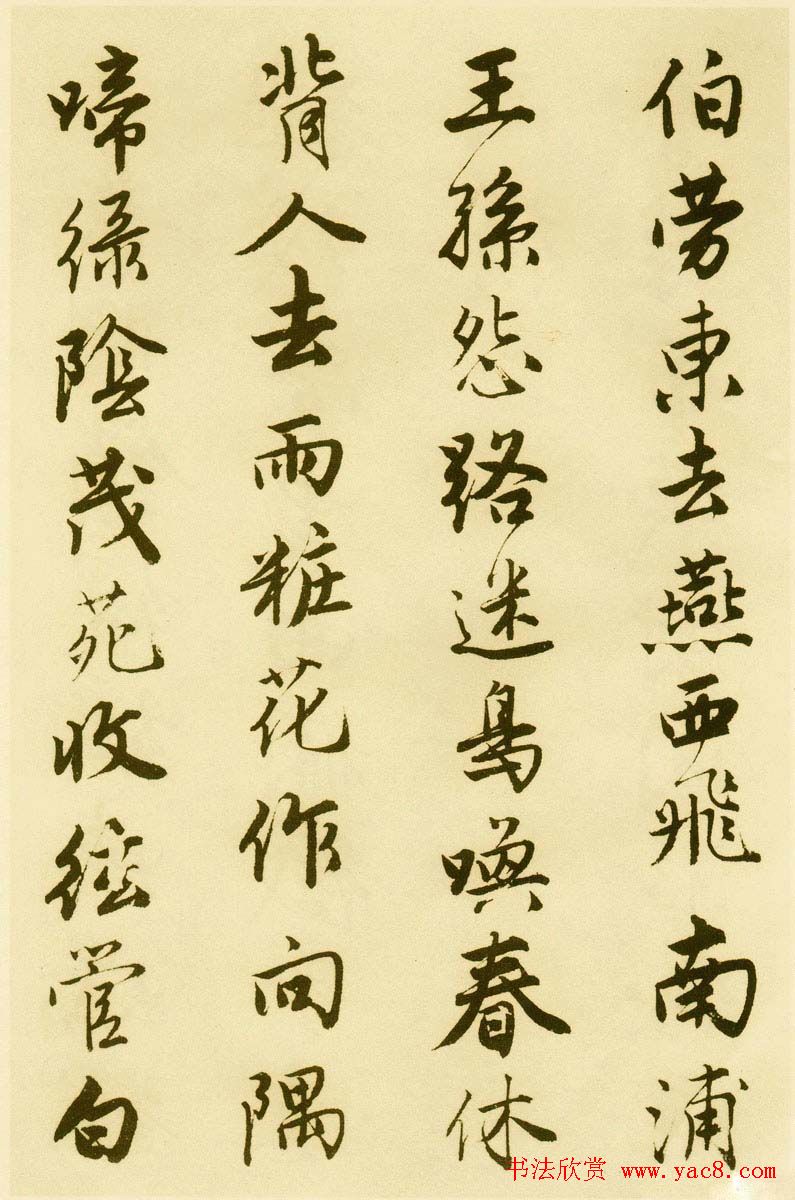 伯劳東去燕西飛南浦
王孫怨路迷鳥喚春休
背人去雨粧花作向隅
啼緑陰茂苑收絃管白
书法欣赏 www.yac8.com